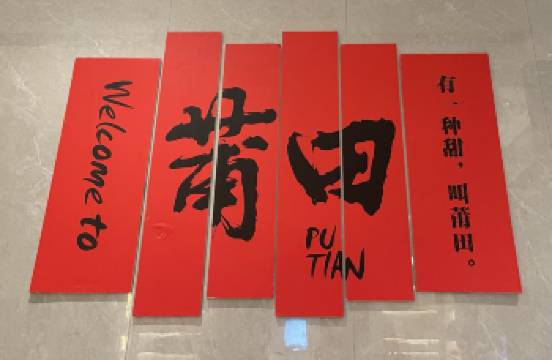 Welcome to
莆田
PU
TIAN
有一种甜，叫莆田。